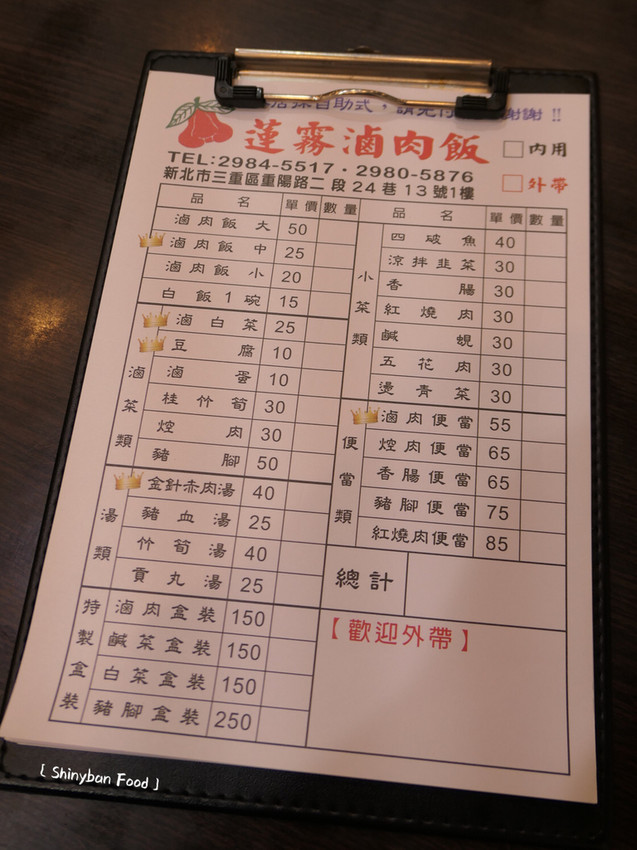 自助式，請
謝謝 !!
蓮霧滷肉飯
□內用
TEL:2984-5517・2980-5876
□外帶
新北市三重區重陽路二段24巷13號1樓
品名 單價 數量
滷肉飯大 50
滷肉飯中 25
滷肉飯小 20
白飯1碗 15
滷菜類
滷白菜 25
豆腐 10
滷蛋 10
桂竹筍 30
焢肉 30
豬腳 50
湯類
金針赤肉湯 40
豬血湯 25
竹筍湯 40
貢丸湯 25
特製盒裝
滷肉盒裝 150
鹹菜盒裝 150
白菜盒裝 150
豬腳盒裝 250
品名 單價 數量
小菜類
四破魚 40
涼拌韭菜 30
香腸 30
紅燒肉 30
鹹蜆 30
五花肉 30
燙青菜 30
便當類
滷肉便當 55
焢肉便當 65
香腸便當 65
豬腳便當 75
紅燒肉便當 85
總計
【歡迎外帶】
[ Shinyban Food ]